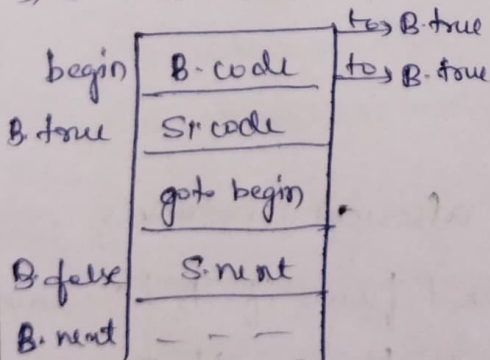 to, B.true
begin B.code to, B.true
B.true S1.code
goto begin
B.false S.next
B.next - - -